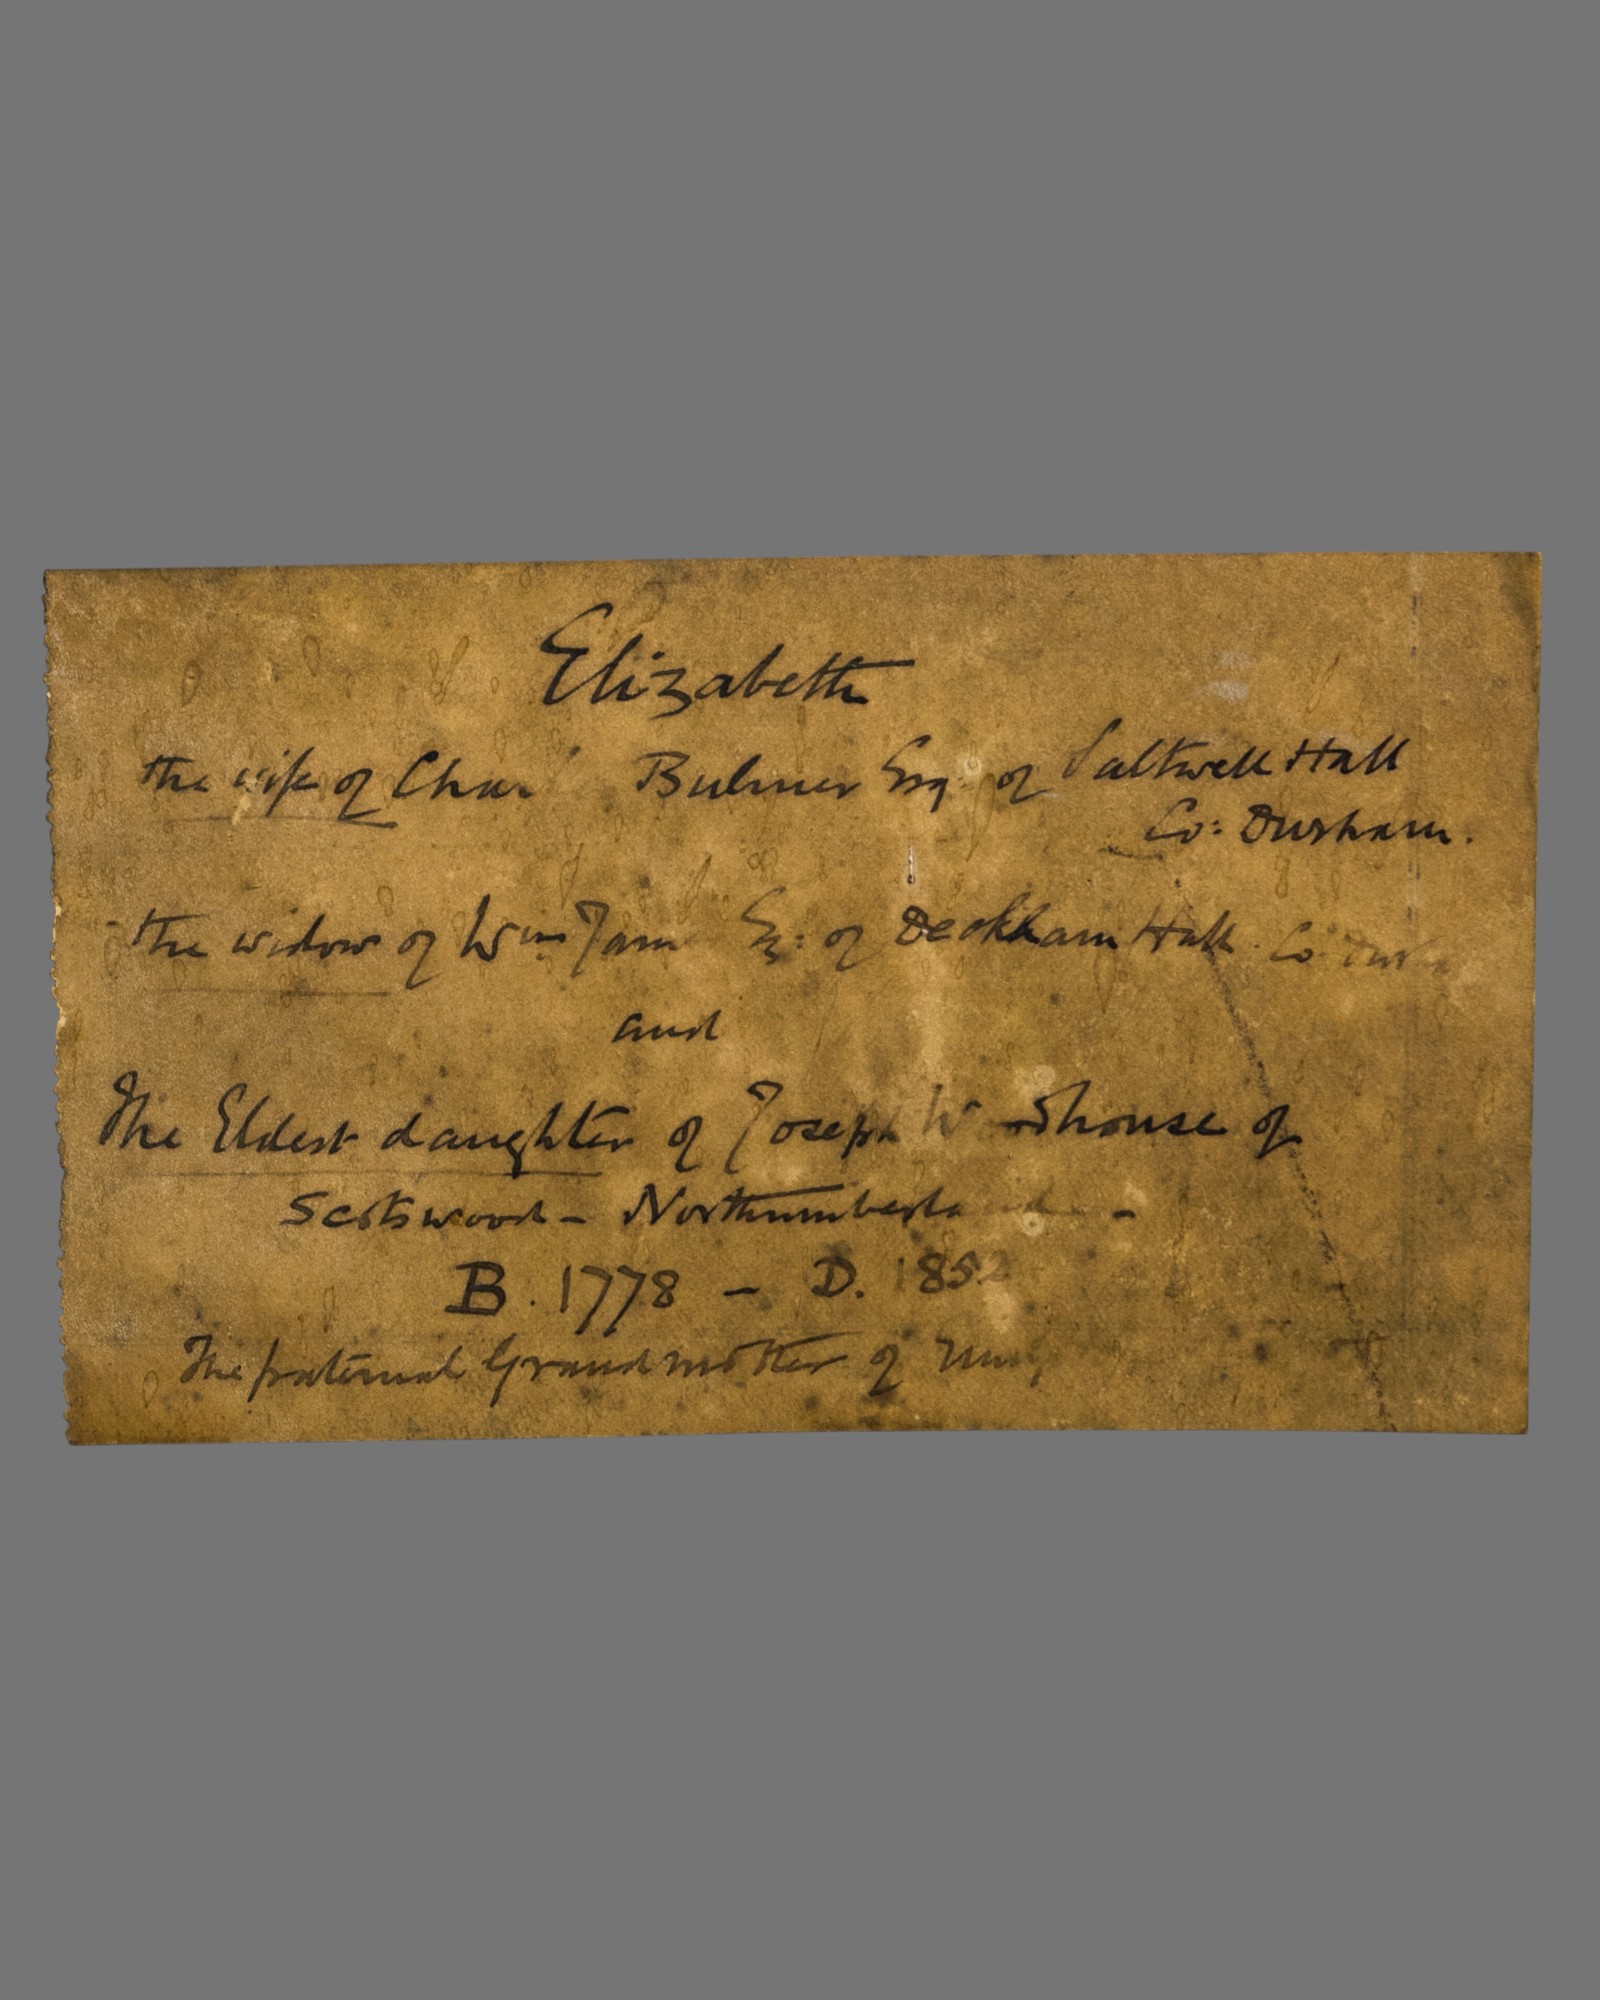 Elizabeth
the wife of Bulmer Esq. of Saltwell Hall
Co: Durham.
the widow of Wm Esq: of Deckham Hall. Co
and
The Eldest daughter of Joseph of
Scotswood - -
B. 1778 - D. 1852
The paternal Grandmother of